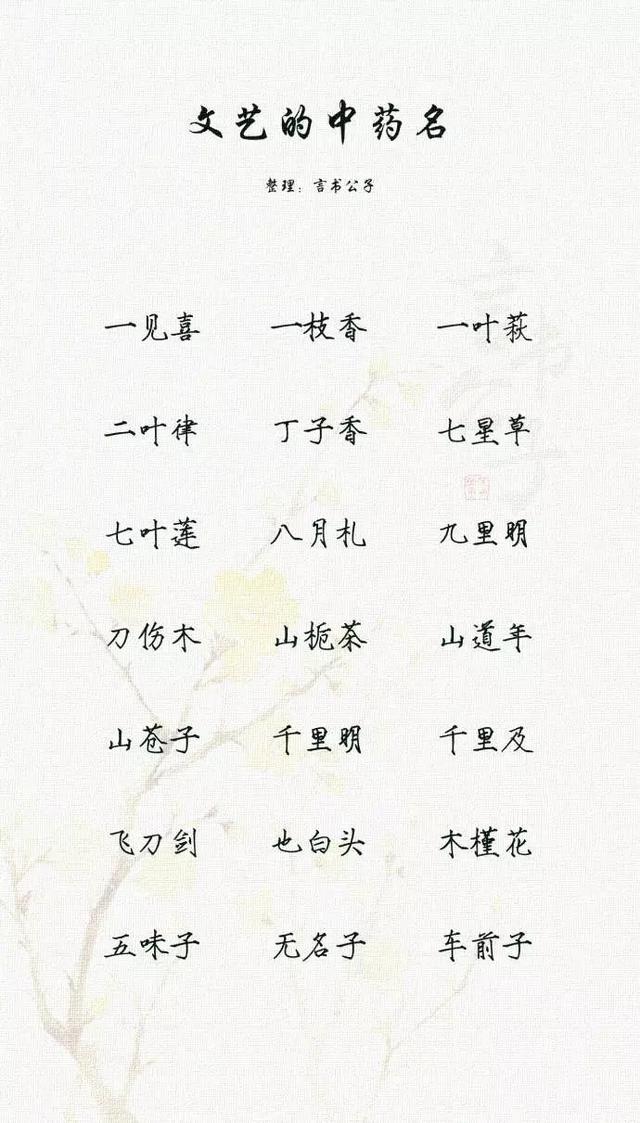 文艺的中药名
整理：言书公子
一见喜 一枝香 一叶萩
二叶律 丁子香 七星草
七叶莲 八月札 九里明
刀伤木 山栀茶 山道年
山苍子 千里明 千里及
飞刀剑 也白头 木槿花
五味子 无名子 车前子